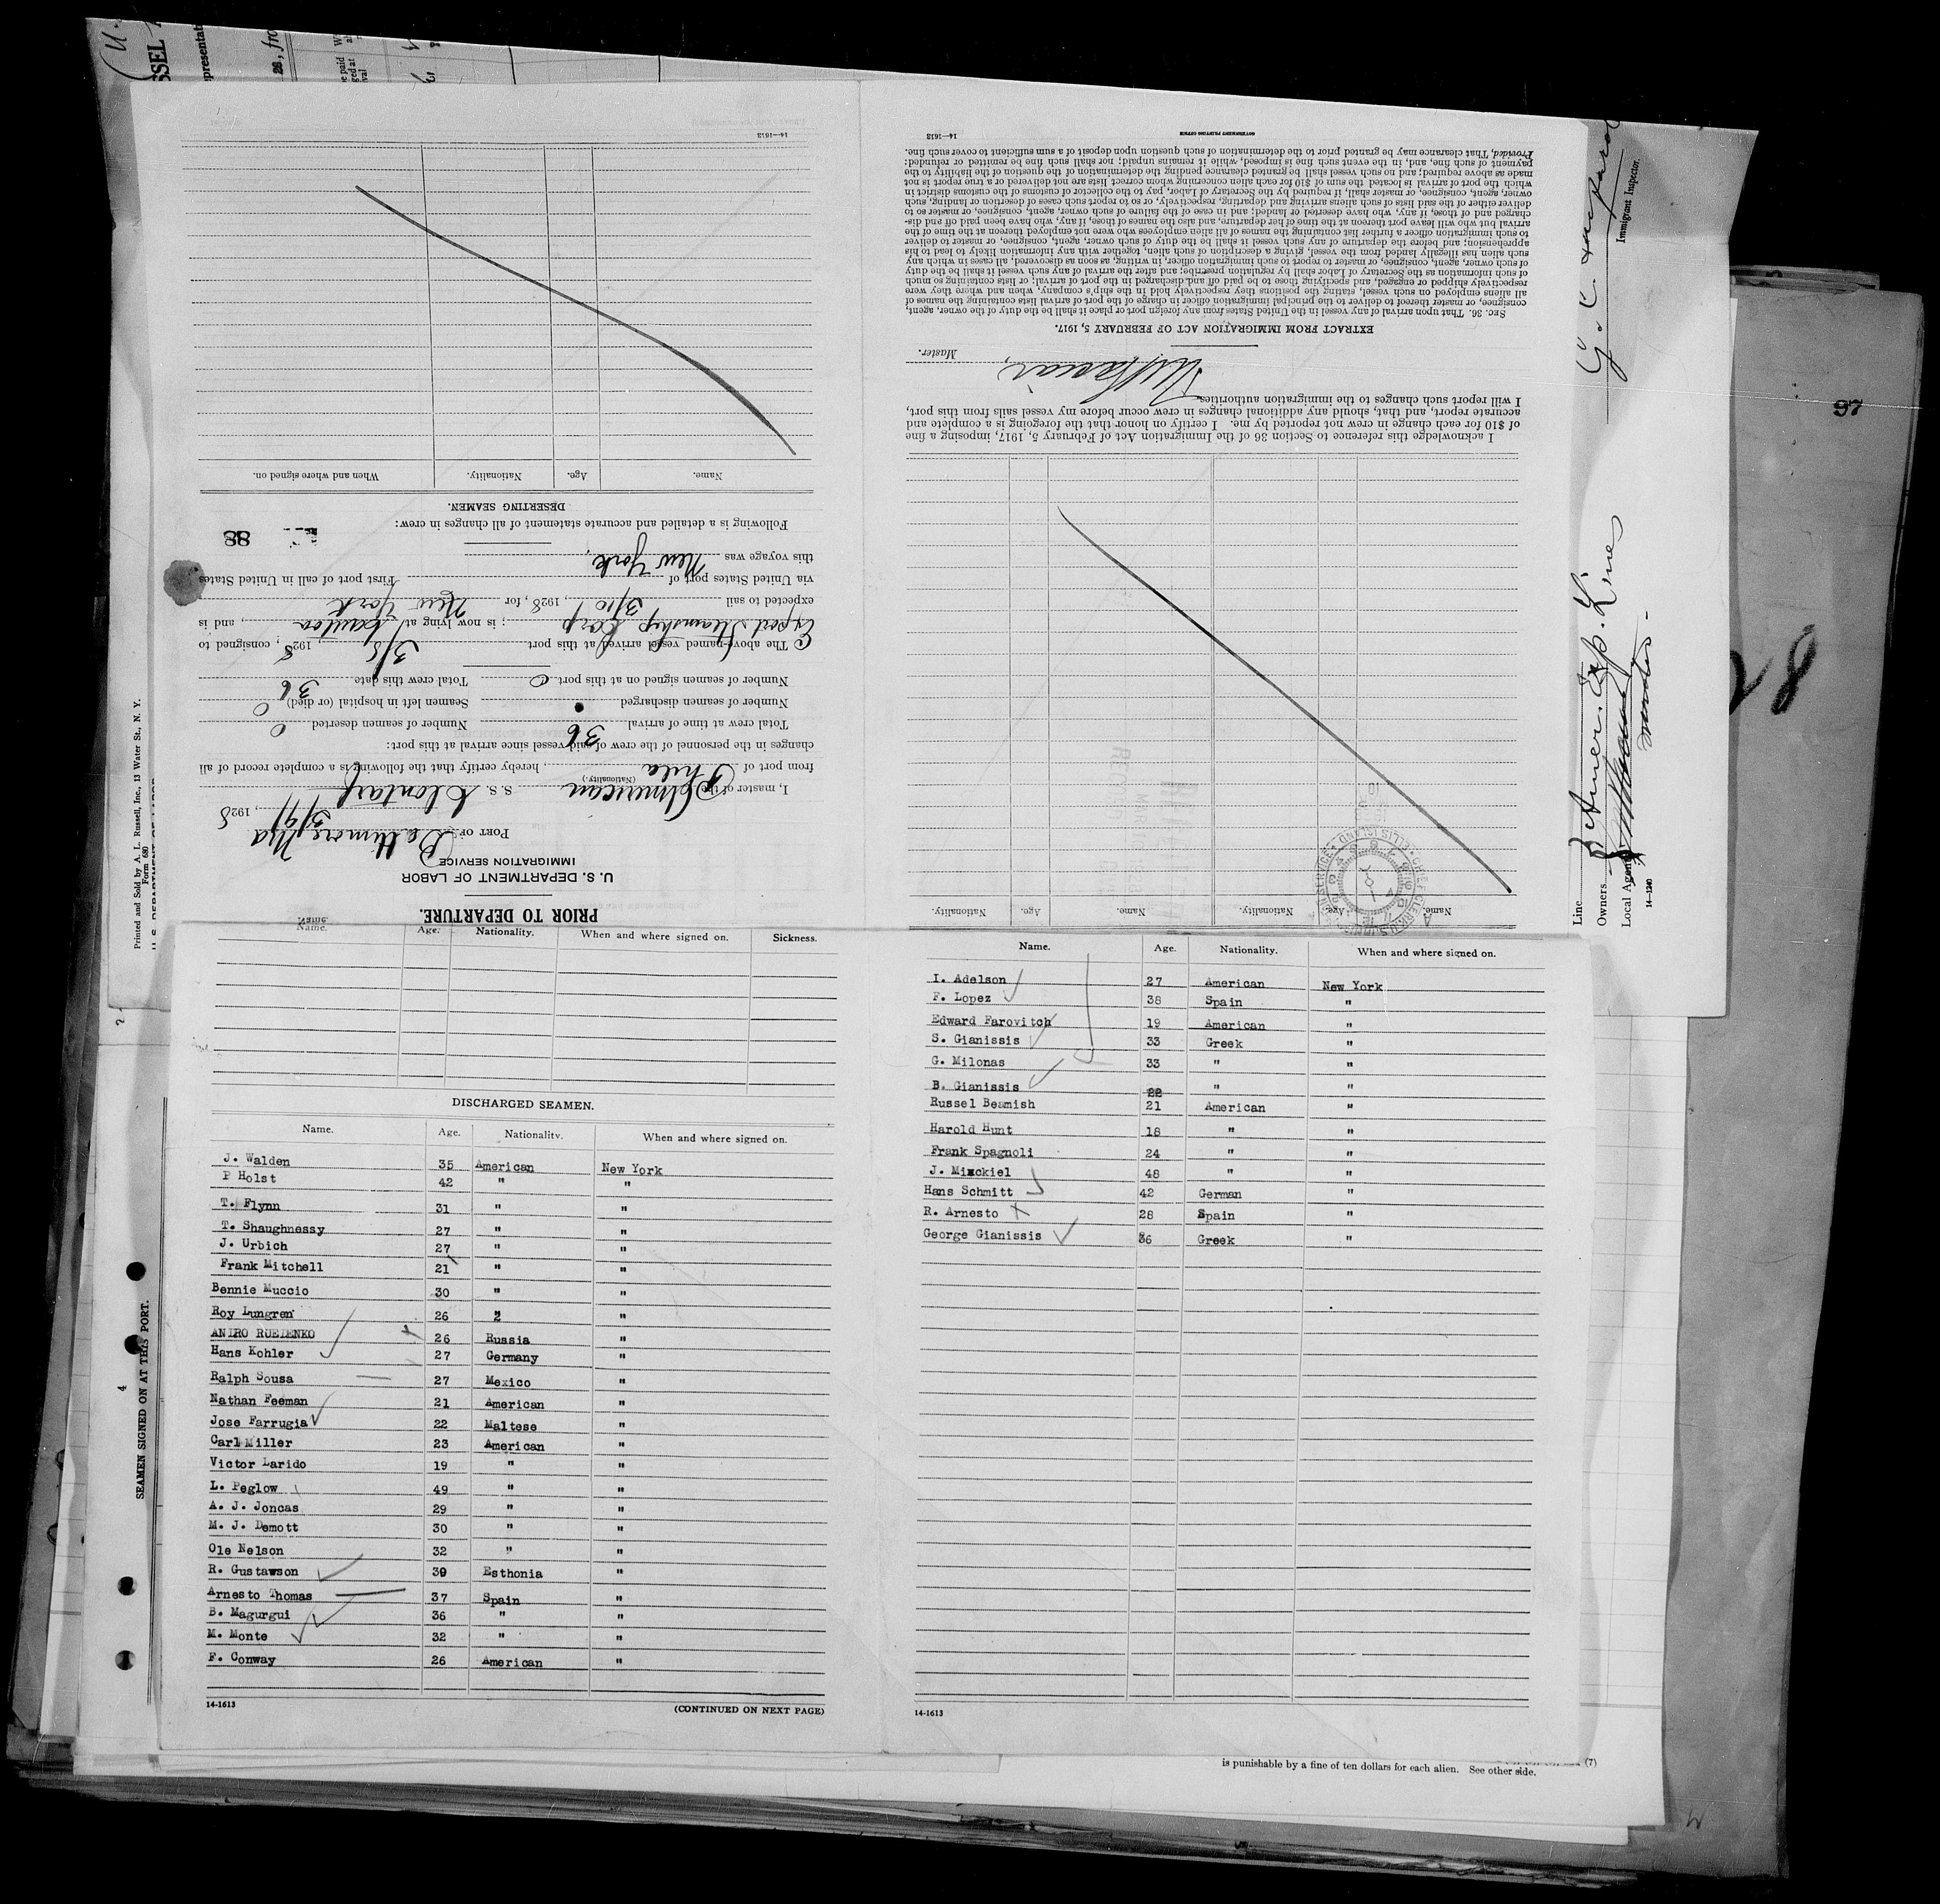 PRIOR TO DEPARTURE.
U. S. DEPARTMENT OF LABOR
IMMIGRATION SERVICE
PORT OF Baltimore Md
3/9, 1928
I, master of the American S. S. Clontarf
(Nationality.)
from port of Phila, hereby certify that the following is a complete record of all
changes in the personnel of the crew of said vessel since arrival at this port:
Total crew at time of arrival 36 Number of seamen deserted 0
Number of seamen discharged Seamen left in hospital (or died) 0
Number of seamen signed on at this port 0 Total crew this date 36
The above-named vessel arrived at this port 3/8, 1928, consigned to
Export Steamship Corp; is now lying at Canton, and is
expected to sail 3/10, 1928, for New York
via United States port of First port of call in United States
this voyage was New York,
Following is a detailed and accurate statement of all changes in crew:
88
DESERTING SEAMEN.
Name. Age. Nationality. When and where signed on.
14—1613
Name. Age. Nationality. Name. Age. Nationality.
I acknowledge this reference to Section 36 of the Immigration Act of February 5, 1917, imposing a fine
of $10 for each change in crew not reported by me. I certify on honor that the foregoing is a complete and
accurate report, and that, should any additional changes in crew occur before my vessel sails from this port,
I will report such changes to the immigration authorities.
Master.
EXTRACT FROM IMMIGRATION ACT OF FEBRUARY 5, 1917.
SEC. 36. That upon arrival of any vessel in the United States from any foreign port or place it shall be the duty of the owner, agent,
consignee, or master thereof to deliver to the principal immigration officer in charge of the port of arrival lists containing the names of
all aliens employed on such vessel, stating the positions they respectively hold in the ship's company, when and where they were
respectively shipped or engaged, and specifying those to be paid off and discharged in the port of arrival; or lists containing so much
of such information as the Secretary of Labor shall by regulation prescribe; and after the arrival of any such vessel it shall be the duty
of such owner, agent, consignee, or master to report to such immigration officer, in writing, as soon as discovered, all cases in which any
such alien has illegally landed from the vessel, giving a description of such alien, together with any information likely to lead to his
apprehension; and before the departure of any such vessel it shall be the duty of such owner, agent, consignee, or master to deliver
to such immigration officer a further list containing the names of all alien employees who were not employed thereon at the time of the
arrival but who will leave port thereon at the time of her departure, and also the names of those, if any, who have been paid off and dis-
charged and of those, if any, who have deserted or landed; and in case of the failure of such owner, agent, consignee, or master so to
deliver either of the said lists of such aliens arriving and departing, respectively, or so to report such cases of desertion or landing, such
owner, agent, consignee, or master, shall, if required by the Secretary of Labor, pay to the collector of customs of the customs district in
which the port of arrival is located the sum of $10 for each alien concerning whom correct lists are not delivered or a true report is not
made as above required; and no such vessel shall be granted clearance pending the determination of the question of the liability to the
payment of such fine, and, in the event such fine is imposed, while it remains unpaid; nor shall such fine be remitted or refunded:
Provided, That clearance may be granted prior to the determination of such question upon deposit of a sum sufficient to cover such fine.
14—1613 GOVERNMENT PRINTING OFFICE
Name. Age. Nationality. When and where signed on. Sickness.
DISCHARGED SEAMEN.
Name. Age. Nationality. When and where signed on.
J. Walden 35 American New York
P Holst 42 " "
T. Flynn 31 " "
T. Shaughnessy 27 " "
J. Urbich 27 " "
Frank Mitchell 21 " "
Bennie Muccio 30 " "
Roy Lungren 26 2 "
ANDRO RUEDENKO 26 Russia "
Hans Kohler 27 Germany "
Ralph Sousa 27 Mexico "
Nathan Feeman 21 American "
Jose Farrugia 22 Maltese "
Carl Miller 23 American "
Victor Larido 19 " "
L. Peglow 49 " "
A. J. Joncas 29 " "
M. J. Demott 30 " "
Ole Nelson 32 " "
R. Gustawson 30 Esthonia "
Arnesto Thomas 37 Spain "
B. Magurgui 36 " "
M. Monte 32 " "
F. Conway 26 American "
14-1613
(CONTINUED ON NEXT PAGE)
Name. Age. Nationality. When and where signed on.
I. Adelson 27 American New York
F. Lopez 38 Spain "
Edward Farovitch 19 American "
S. Gianissis 33 Greek "
G. Milonas 33 " "
B. Gianissis 22 " "
Russel Beamish 21 American "
Harold Hunt 18 " "
Frank Spagnoli 24 " "
J. Minckiel 48 " "
Hans Schmitt 42 German "
R. Arnesto 28 Spain "
George Gianissis 36 Greek "
14-1613
is punishable by a fine of ten dollars for each alien. See other side.
(7)
Printed and Sold by A. L. Russell, Inc., 13 Water St., N. Y.
Form 680
SEAMEN SIGNED ON AT THIS PORT.
4
Immigrant Inspector.
Line Amer. Exp. Line
Owners
Local Agents
14—1240
97
28